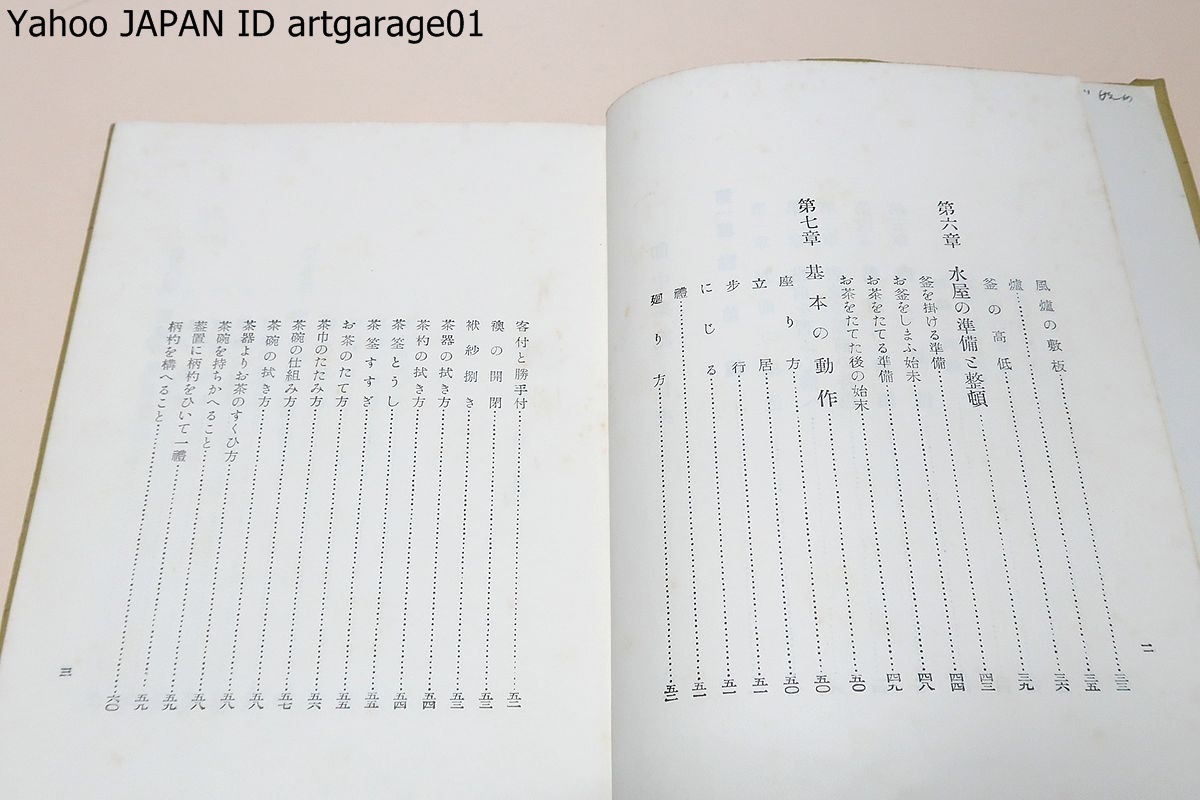 Yahoo JAPAN ID artgarage01
風爐の敷板 三三
爐 三五
釜の高低 三六
第六章 水屋の準備と整頓 三九
釜を掛ける準備 四三
お釜をしまふ始末 四四
お茶をたてる準備 四八
お茶をたてた後の始末 四九
第七章 基本の動作 五〇
座り方 五〇
立居 五〇
歩行 五一
にじる 五一
禮 五一
廻り方 五二
二
客付と勝手付 五二
襖の開閉 五三
袱紗捌き 五三
茶器の拭き方 五四
茶杓の拭き方 五四
茶筌とうし 五五
茶筌すすぎ 五五
お茶のたて方 五六
茶巾のたたみ方 五七
茶碗の仕組み方 五八
茶碗の拭き方 五八
茶器よりお茶のすくひ方 五八
茶碗を持ちかへること 五九
蓋置に柄杓をひいて一禮 五九
柄杓を構へること 六〇
三